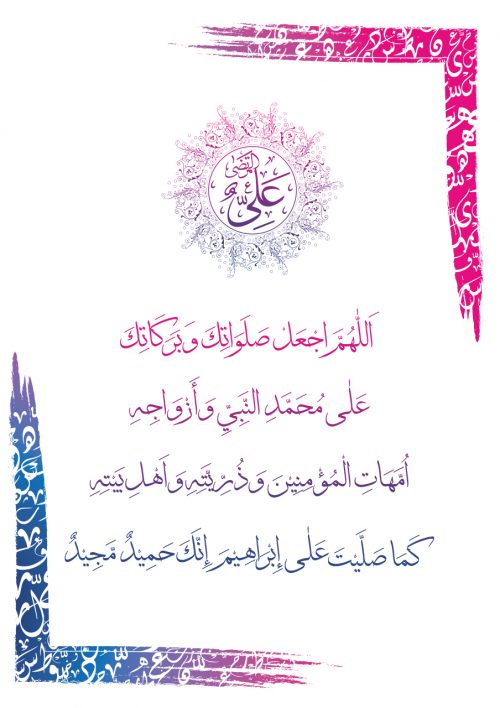 المرتضى
علي
اَللّٰهُمَّ اجْعَلْ صَلَوَاتِكَ وَبَرَكَاتِكَ
عَلٰى مُحَمَّدِ النَّبِيِّ وَأَزْوَاجِهِ
أُمَّهَاتِ الْمُؤْمِنِيْنَ وَذُرِّيَّتِهِ وَاَهْلِ بَيْتِهِ
كَمَا صَلَّيْتَ عَلٰى إِبْرَاهِيمَ إِنَّكَ حَمِيْدٌ مَّجِيْدٌ